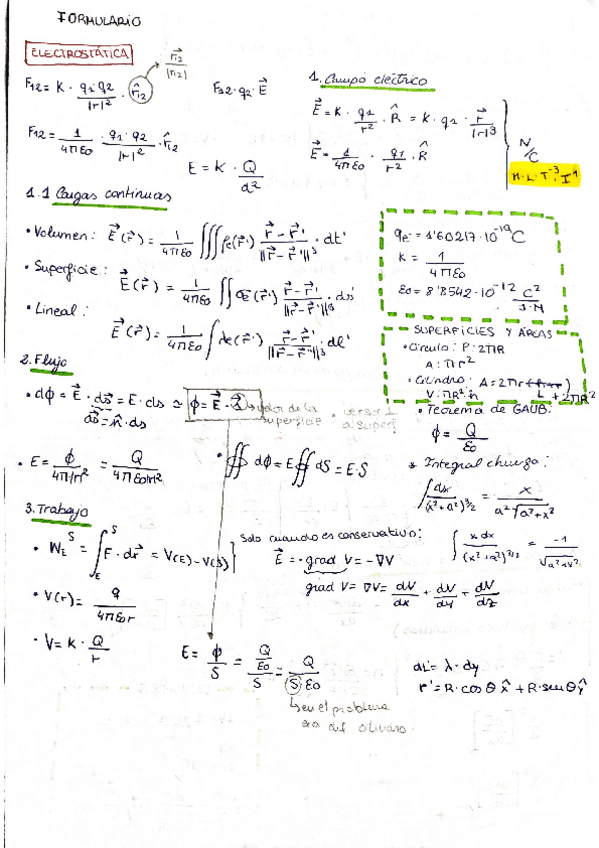 FORMULARIO
ELECTROSTÁTICA
r⃗12 / |r12|
F12 = K · q1·q2 / |r|² · r̂12
F12 · q2 · E⃗
F12 = 1 / 4πεo · q1·q2 / |r|² · r̂12
E = K · Q / d²
1. Campo eléctrico
E⃗ = K · q1 / r² · R̂ = K · q1 · r⃗ / |r|³
E⃗ = 1 / 4πεo · q1 / r² · R̂
N/C
M·L·T⁻³·I⁻¹
1.1 Cargas continuas
• Volumen: E⃗(r⃗) = 1 / 4πεo ∭ ρe(r⃗') r⃗ - r⃗' / ||r⃗ - r⃗'||³ · dτ'
• Superficie: E⃗(r⃗) = 1 / 4πεo ∬ σe(r⃗') r⃗ - r⃗' / ||r⃗ - r⃗'||³ · ds'
• Lineal: E⃗(r⃗) = 1 / 4πεo ∫ λe(r⃗') r⃗ - r⃗' / ||r⃗ - r⃗'||³ · dl'
qe⁻ = 1'60217·10⁻¹⁹ C
K = 1 / 4πεo
εo = 8'8542·10⁻¹² C² / J·M
SUPERFICIES Y ÁREAS
• Círculo: P = 2πR
A: πr²
• Cilindro: A = 2πr L + 2πR²
V: πR²·h
2. Flujo
• dϕ = E⃗ · ds⃗ = E · ds ≃ ϕ = E⃗ · S⃗
ds⃗ = n̂ · ds
valor de la superficie
• E = ϕ / 4πr² = Q / 4πεor²
• ∯ dϕ = E ∯ dS = E·S
• Teorema de GAUB:
ϕ = Q / εo
* Integral chunga:
∫ dx / (x²+a²)³/² = x / a²√a²+x²
∫ x dx / (x²+a²)³/² = -1 / √a²+x²
3. Trabajo
• WE^S = ∫E^S F · dr⃗ = V(E) - V(S)
Solo cuando es conservativo:
E⃗ = -grad V = -∇V
grad V = ∇V = dV/dx + dV/dy + dV/dz
• V(r) = q / 4πεor
• V = K · Q / r
E = ϕ / S = Q/εo / S = Q / S·εo
↳ en el problema
era del cilindro.
dL' = λ · dy
r' = R·cosθ x̂ + R·senθ ŷ